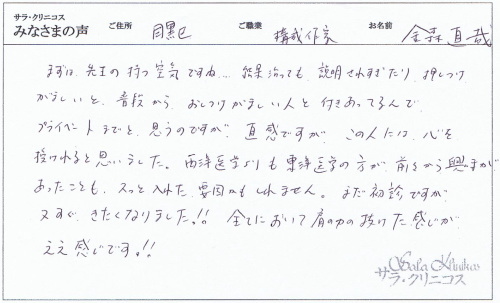 サラ・クリニコス
みなさまの声
ご住所 目黒区
ご職業 構成作家
お名前 金森直哉
まずは、先生の持つ空気ですね… 結果治っても、説明されすぎたり、押しつけ
がましいと、普段から、おしつけがましい人と付きあってるんで、
プライベートまでと、思うのですが、直感ですが、この人には、心を
授けれると思いました。西洋医学よりも東洋医学の方が、前々から興味が
あったことも、スッと入れた要因かもしれません。まだ初診ですが、
又すぐ、きたくなりました!! 全てにおいて肩の力の抜けた感じが、
ええ感じです。!!
Sala Klinikos
サラ・クリニコス